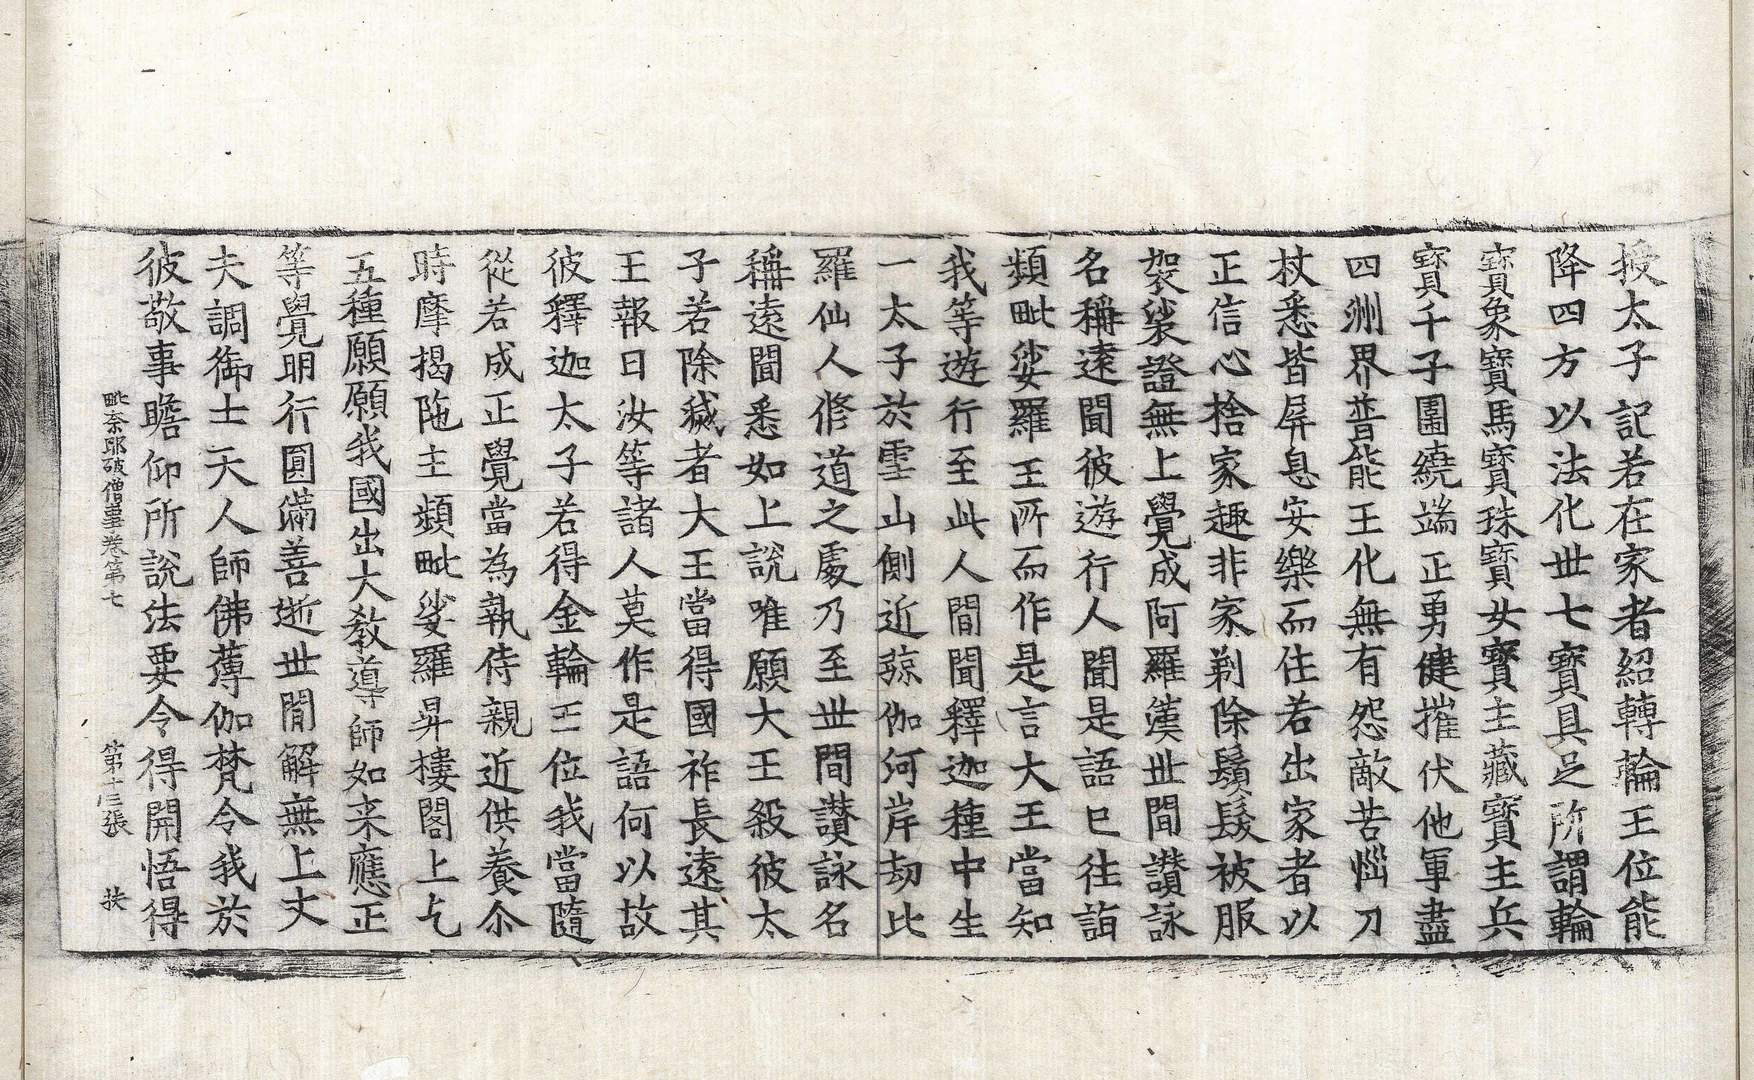 授太子記若在家者紹轉輪王位能
降四方以法化世七寶具足所謂輪
寶象寶馬寶珠寶女寶主藏寶主兵
寶千子圍繞端正勇健摧伏他軍盡
四洲界普能王化無有怨敵苦惱刀
杖悉皆屏息安樂而住若出家者以
正信心捨家趣非家剃除鬚髮被服
袈裟證無上覺成阿羅漢世間讃詠
名稱遠聞彼遊行人聞是語已往詣
頻毗娑羅王所而作是言大王當知
我等遊行至此人間聞釋迦種中生
一太子於雪山側近弶伽河岸劫比
羅仙人修道之處乃至世間讃詠名
稱遠聞悉如上說唯願大王殺彼太
子若除穢者大王當得國祚長遠其
王報曰汝等諸人莫作是語何以故
彼釋迦太子若得金輪王位我當隨
從若成正覺當為執侍親近供養尒
時摩揭陁主頻毗娑羅昇樓閣上乞
五種願願我國出大教導師如来應正
等覺明行圓滿善逝世間解無上丈
夫調御士天人師佛薄伽梵令我於
彼敬事瞻仰所說法要令得開悟得
毗奈耶破僧事卷第七 第十三張 扶